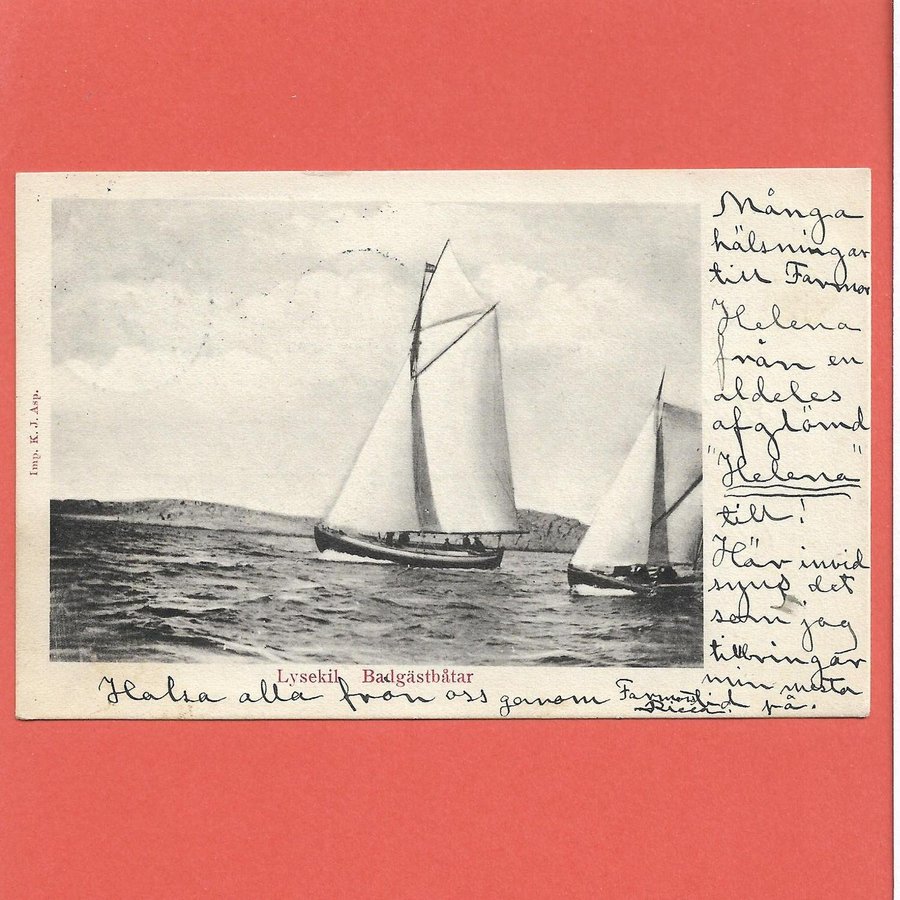 Imp. K. J. Asp.
Lysekil Badgästbåtar
Många
hälsningar
till Farmor
Helena
från en
aldeles
afglömd
"Helena"
till!
Här invid
syns det
som jag
tillbringar
min mesta
tid på.
Halsa alla från oss genom Farmors